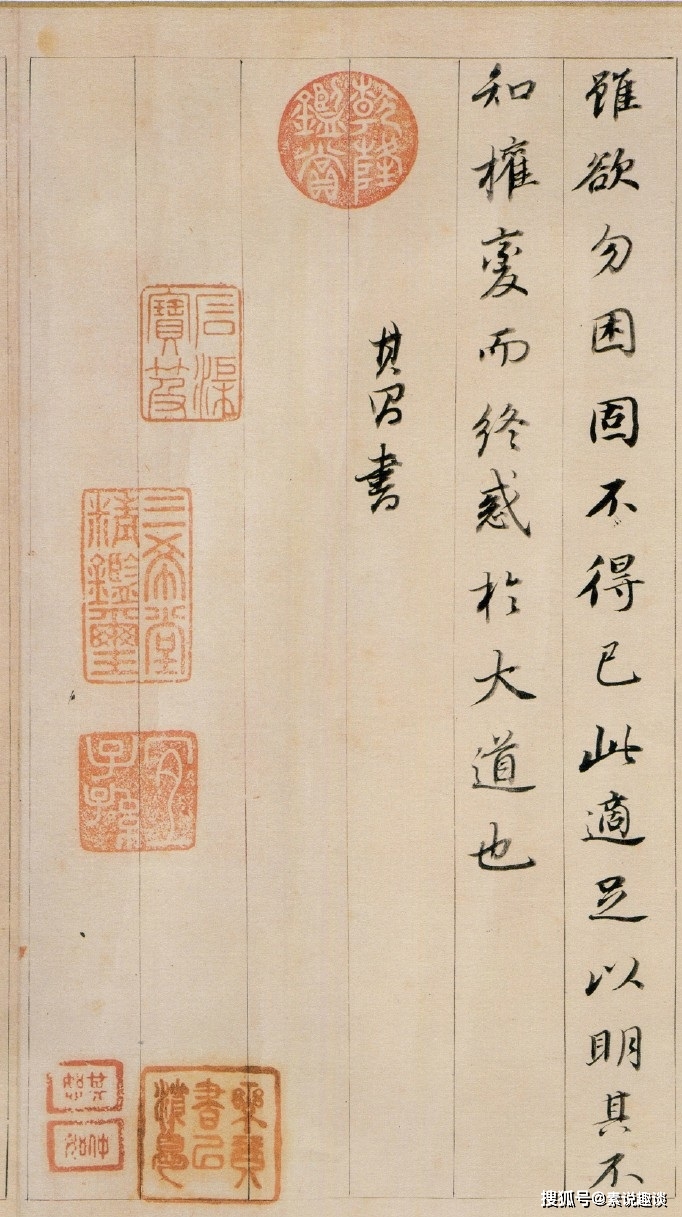 雖欲勿困固不得已此適足以明其不
知權變而終惑於大道也
其昌書
乾隆鑑賞
石渠寶笈
三希堂精鑑璽
宜子孫
搜狐号@素说趣谈